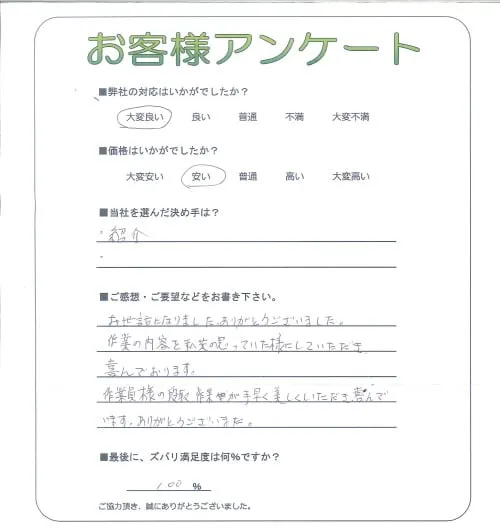 お客様アンケート
■弊社の対応はいかがでしたか？
大変良い 良い 普通 不満 大変不満
■価格はいかがでしたか？
大変安い 安い 普通 高い 大変高い
■当社を選んだ決め手は？
・紹介
・
■ご感想・ご要望などをお書き下さい。
お世話になりました。ありがとうございました。
作業の内容を私共の思っていた様にしていただき
喜んでおります。
作業員様の 作業が手早く美しくいただき喜んで
います。ありがとうございました。
■最後に、ズバリ満足度は何%ですか？
100 %
ご協力頂き、誠にありがとうございました。